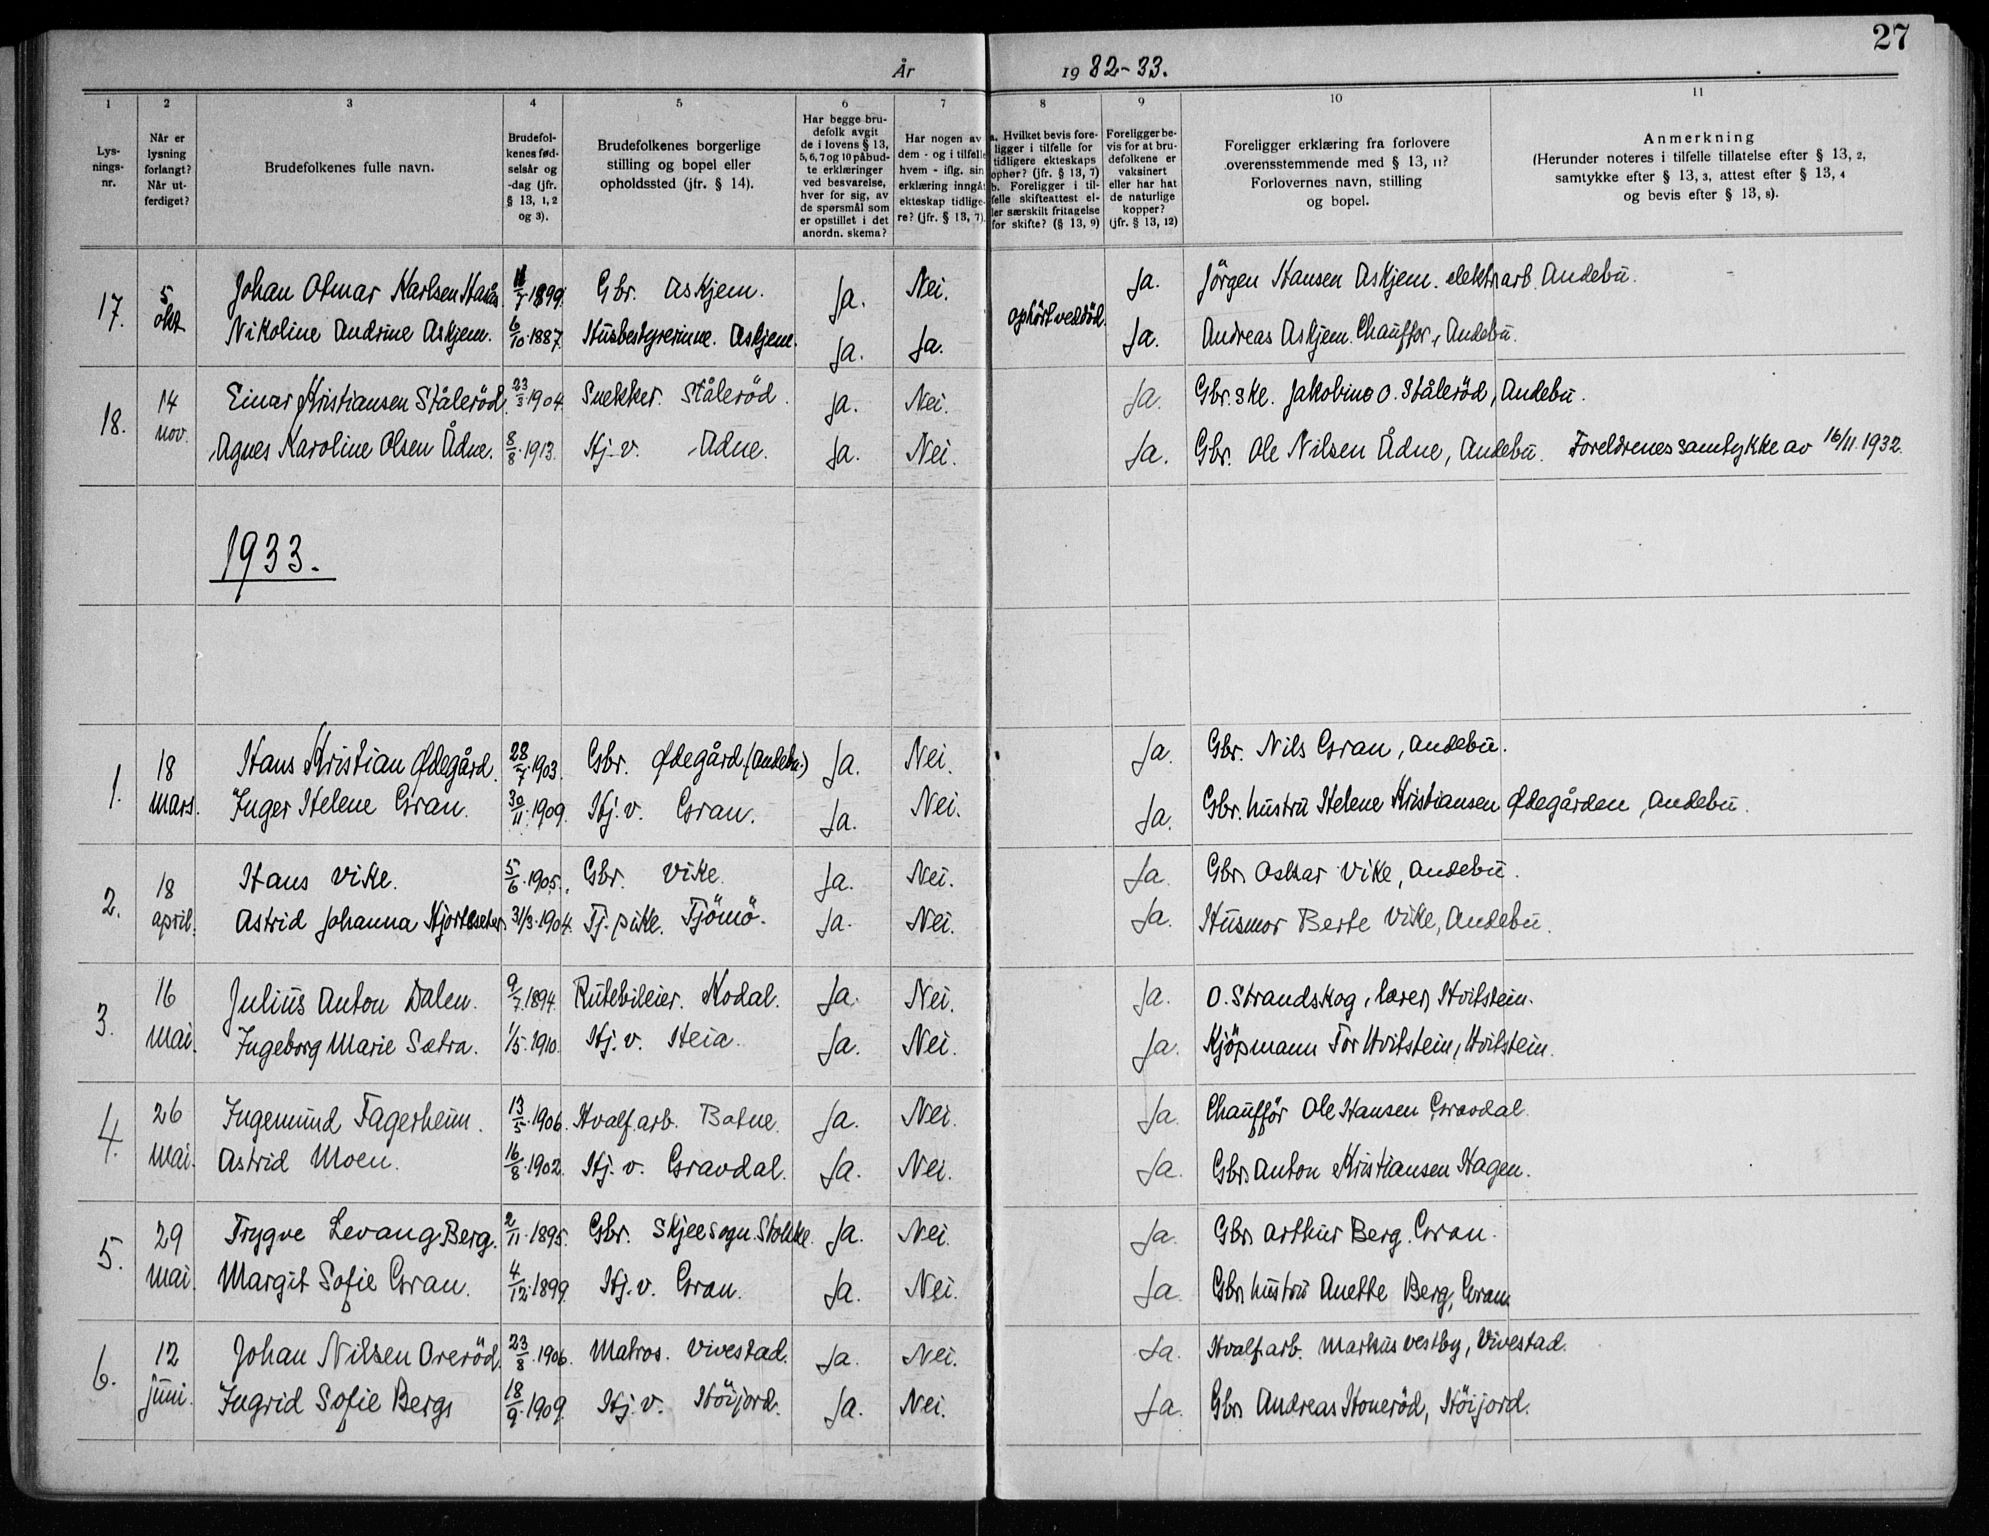 27
År 1932-33.
1 2 3 4 5 6 7 8 9 10 11
Lys-nings-nr.
Når er lysning forlangt? Når ut-ferdiget?
Brudefolkenes fulle navn.
Brudefol-kenes fød-selsår og -dag (jfr. § 13, 1, 2 og 3).
Brudefolkenes borgerlige stilling og bopel eller opholdssted (jfr. § 14).
Har begge bru-defolk avgit de i lovens § 13, 5, 6, 7 og 10 påbud-te erklæringer ved besvarelse, hver for sig, av de spørsmål som er opstillet i det anordn. skema?
Har nogen av dem - og i tilfelle hvem - iflg. sin erklæring inngåt ekteskap tidlige-re? (jfr. § 13, 7).
a. Hvilket bevis fore-ligger i tilfelle for tidligere ekteskaps ophør? (jfr. § 13, 7) b. Foreligger i til-felle skifteattest el-ler særskilt fritagelse for skifte? (§ 13, 9)
Foreligger be-vis for at bru-defolkene er vaksinert eller har hat de naturlige kopper? (jfr. § 13, 12)
Foreligger erklæring fra forlovere overensstemmende med § 13, 11? Forlovernes navn, stilling og bopel.
Anmerkning (Herunder noteres i tilfelle tillatelse efter § 13, 2, samtykke efter § 13, 3, attest efter § 13, 4 og bevis efter § 13, 8).
17. 5 Johan Otmar Karlsen 1899. Gbr. Askjem. Ja. Nei. Ja. Jörgen Hansen Askjem. elektr. arb. Andebu.
okt Nikoline Andrine Askjem. 6/10.1887. Husbestyrerinne. Askjem. Ja. Ja. ophört ved död. Ja. Andreas Askjem. Chauffør, Andebu.
18. 14 Einar Kristiansen Ståleröd. 23/3.1904. Snekker. Ståleröd. Ja. Nei. Ja. Gbr.ske. Jakobine O. Ståleröd, Andebu.
nov. Agnes Karoline Olsen Ådne. 8/8.1913. Hj. v. Ådne. Ja. Nei. Ja. Gbr. Ole Nilsen Ådne, Andebu. Foreldrenes samtykke av 16/11.1932.
1933.
1. 18 Hans Kristian Ødegård. 28/7.1903. Gbr. Ødegård. (Andebu.) Ja. Nei. Ja. Gbr. Nils Gran, Andebu.
mars. Inger Helene Gran. 30/11.1909. Hj. v. Gran. Ja. Nei. Ja. Gbr. hustru Helene Kristiansen Ødegården, Andebu.
2. 18 Hans Vike. 5/6.1905. Gbr. Vike. Ja. Nei. Ja. Gbr. Oskar Vike, Andebu.
april. Astrid Johanna Hjortseter. 31/3.1904. Tj. pike. Tjömö. Ja. Nei. Ja. Husmor Berte Vike, Andebu.
3. 16 Julius Anton Dalen. 9/7.1894. Rutebileier. Kodal. Ja. Nei. Ja. O. Strandskog, lærer, Hvitstein.
mai. Ingeborg Marie Sætra. 1/5.1910. Hj. v. Heia. Ja. Nei. Ja. Kjöpmann Tor Hvitstein, Hvitstein.
4. 26 Ingemund Fagerheim. 13/5.1906. Hvalf.arb. Botne. Ja. Nei. Ja. Chafför Ole Hansen Gravdal.
mai. Astrid Moen. 16/8.1902. Hj. v. Gravdal. Ja. Nei. Ja. Gbr. Anton Kristiansen Hagen.
5. 29 Trygve Levang Berg. 2/11.1895. Gbr. Skjee sogn. Stokke. Ja. Nei. Ja. Gbr. Arthur Berg. Gran.
mai. Margit Sofie Gran. 4/12.1899. Hj. v. Gran. Ja. Nei. Ja. Gbr. hustru Anette Berg, Gran.
6. 12 Johan Nilsen Oreröd. 23/8.1906. Matros. Vivestad. Ja. Nei. Ja. Hvalf.arb. Markus Vestby, Vivestad.
juni. Ingrid Sofie Berg 18/9.1909. Hj. v. Höijord. Ja. Nei. Ja. Gbr. Andreas Honeröd, Höijord.